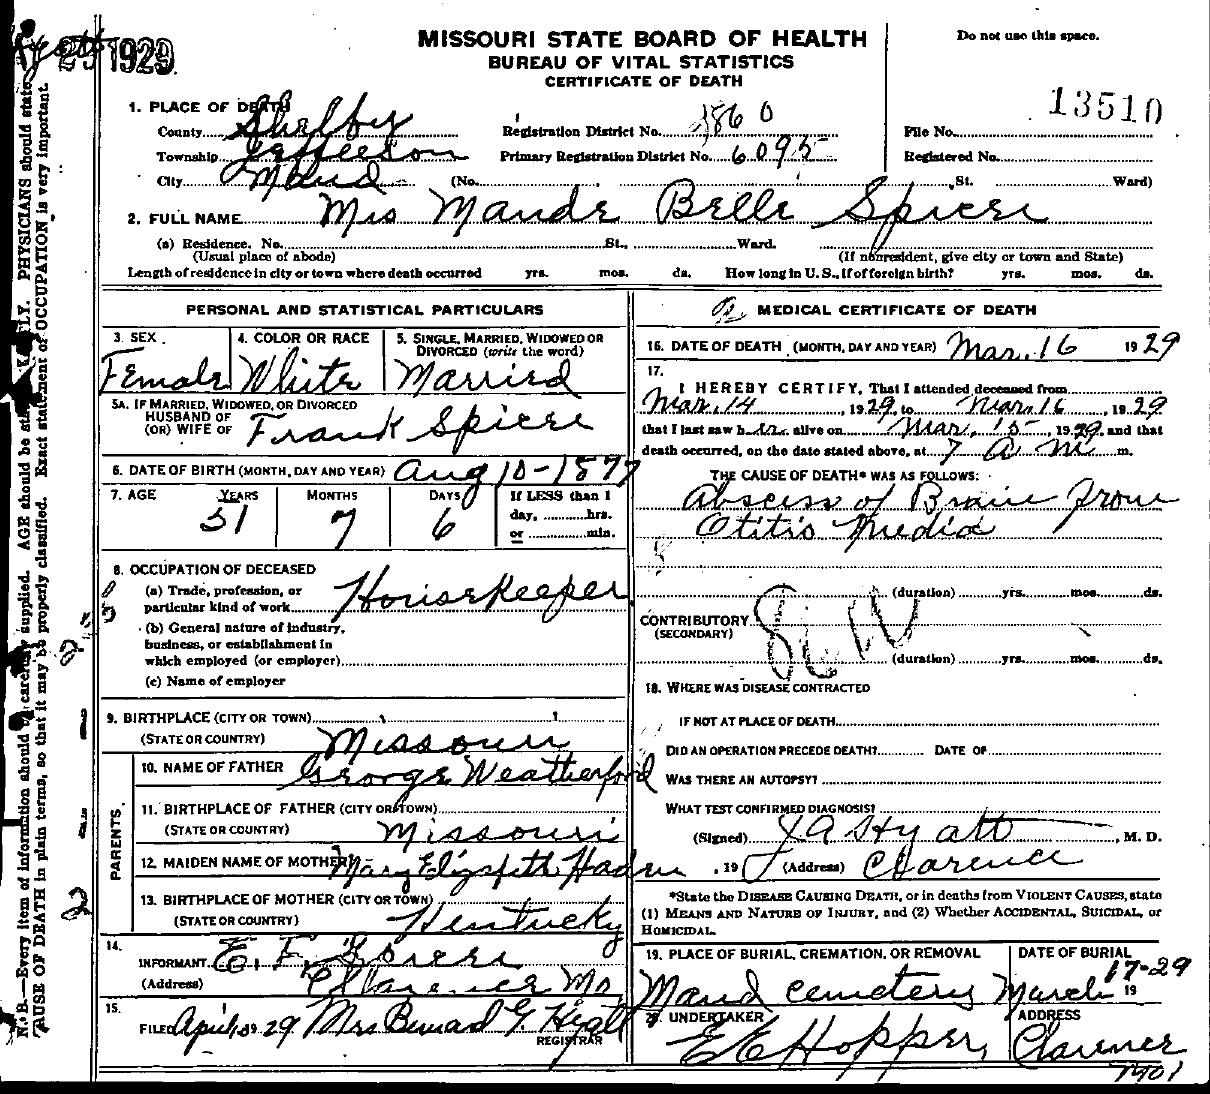 1929
MISSOURI STATE BOARD OF HEALTH
BUREAU OF VITAL STATISTICS
CERTIFICATE OF DEATH
Do not use this space.
13510
1. PLACE OF DEATH
County Shelby Registration District No. 860 File No.
Township Jefferson Primary Registration District No. 6095 Registered No.
City Maud (No. St. Ward)
2. FULL NAME Mrs Maude Belle Spicer
(a) Residence. No. St., Ward.
(Usual place of abode) (If nonresident, give city or town and State)
Length of residence in city or town where death occurred yrs. mos. ds. How long in U.S., if of foreign birth? yrs. mos. ds.
PERSONAL AND STATISTICAL PARTICULARS
3. SEX 4. COLOR OR RACE 5. SINGLE, MARRIED, WIDOWED OR
DIVORCED (write the word)
Female White Married
5A. IF MARRIED, WIDOWED, OR DIVORCED
HUSBAND OF
(OR) WIFE OF Frank Spicer
6. DATE OF BIRTH (MONTH, DAY AND YEAR) Aug 10-1877
7. AGE YEARS MONTHS DAYS If LESS than 1
day, hrs.
or min.
51 7 6
8. OCCUPATION OF DECEASED
(a) Trade, profession, or
particular kind of work Housekeeper
(b) General nature of industry,
business, or establishment in
which employed (or employer)
(c) Name of employer
9. BIRTHPLACE (CITY OR TOWN)
(STATE OR COUNTRY) Missouri
PARENTS
10. NAME OF FATHER George Weatherford
11. BIRTHPLACE OF FATHER (CITY OR TOWN)
(STATE OR COUNTRY) Missouri
12. MAIDEN NAME OF MOTHER Mary Elizabeth Haden
13. BIRTHPLACE OF MOTHER (CITY OR TOWN)
(STATE OR COUNTRY) Kentucky
14.
INFORMANT E. F. Spicer
(Address) Clarence Mo
15.
FILED April 29 Mrs G. Hyatt
REGISTRAR
MEDICAL CERTIFICATE OF DEATH
16. DATE OF DEATH (MONTH, DAY AND YEAR) Mar. 16 1929
17.
I HEREBY CERTIFY, That I attended deceased from
Mar. 14, 1929 to Mar. 16, 1929
that I last saw her alive on Mar. 15, 1929, and that
death occurred, on the date stated above, at 7 A m m.
THE CAUSE OF DEATH* WAS AS FOLLOWS:
Abscess of Brain from
Otitis Media
(duration) yrs. mos. ds.
CONTRIBUTORY
(SECONDARY)
(duration) yrs. mos. ds.
18. WHERE WAS DISEASE CONTRACTED
IF NOT AT PLACE OF DEATH
DID AN OPERATION PRECEDE DEATH? DATE OF
WAS THERE AN AUTOPSY?
WHAT TEST CONFIRMED DIAGNOSIS?
(Signed) Hyatt, M. D.
, 19 (Address) Clarence
*State the DISEASE CAUSING DEATH, or in deaths from VIOLENT CAUSES, state
(1) MEANS AND NATURE OF INJURY, and (2) Whether ACCIDENTAL, SUICIDAL, or
HOMICIDAL.
19. PLACE OF BURIAL, CREMATION, OR REMOVAL DATE OF BURIAL
Maud Cemetery March 17-29 19
20. UNDERTAKER ADDRESS
E E Hopper, Clarence
Mo
N. B.—Every item of information should be carefully supplied. AGE should be stated EXACTLY. PHYSICIANS should state
CAUSE OF DEATH in plain terms, so that it may be properly classified. Exact statement of OCCUPATION is very important.